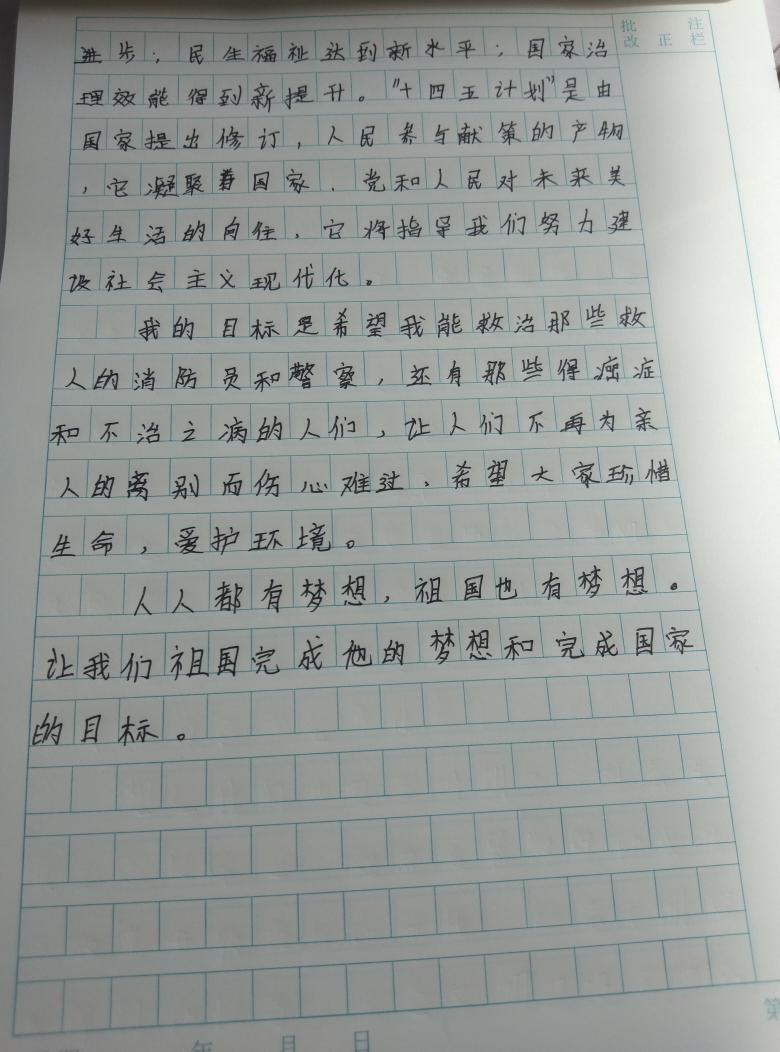 批 注
改 正 栏
进步；民生福祉达到新水平；国家治
理效能得到新提升。“十四五计划”是由
国家提出修订，人民参与献策的产物
，它凝聚着国家、党和人民对未来美
好生活的向往，它将指导我们努力建
设社会主义现代化。
我的目标是希望我能救治那些救
人的消防员和警察，还有那些得癌症
和不治之病的人们，让人们不再为亲
人的离别而伤心难过，希望大家珍惜
生命，爱护环境。
人人都有梦想，祖国也有梦想。
让我们祖国完成他的梦想和完成国家
的目标。
第
年 月 日